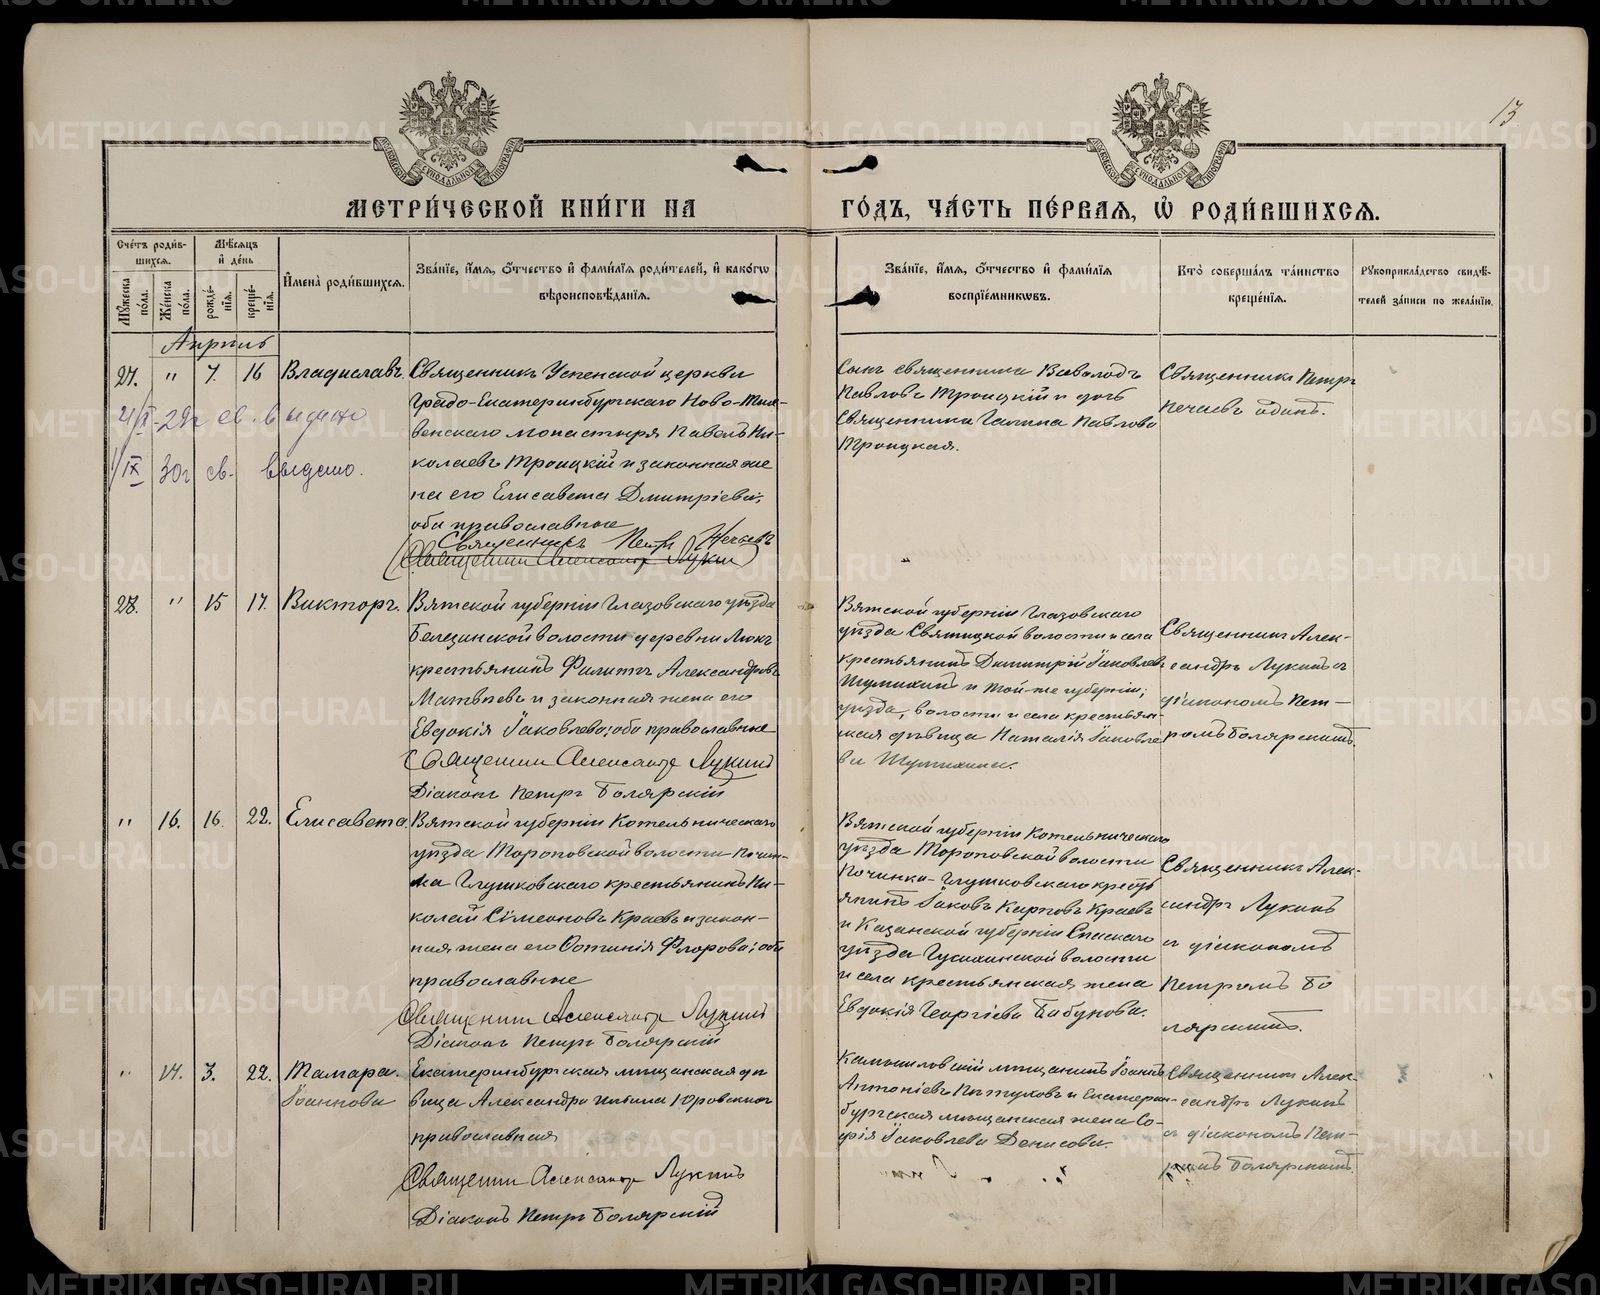 13
МОСКОВСКОЙ СѴНОДАЛЬНОЙ ТИПОГРАФІИ
МОСКОВСКОЙ СѴНОДАЛЬНОЙ ТИПОГРАФІИ
МЕТРИ́ЧЕСКОЙ КНИ́ГИ НА
ГО́ДЪ, ЧА́СТЬ ПЕ́РВАЯ, Ѡ҆ РОДИ́ВШИХСЯ.
Сче́тъ роди́в-
шихся.
Му́жеска по́ла.
Же́нска по́ла.
Мѣ́сяцъ
и҆ де́нь
рожде́-
нїя.
креще́-
нїя.
И҆мена̀ роди́вшихся.
Зва́нїе, и҆́мя, ѻ҆́тчество и҆ фами́лїя роди́телей, и҆ како́гѡ
вѣроисповѣ́данїя.
Зва́нїе, и҆́мя, ѻ҆́тчество и҆ фами́лїя
воспрїе́мникѡвъ.
Кто̀ соверша́лъ та́инство
креще́нїя.
Рꙋкоприкла́дство свидѣ́-
телей за́писи по жела́нїю.
Апрѣль
27. " 7. 16 Владиславъ.
св. выдано
IX 30г св. выдано.
Священникъ Успенской церкви
Градо-Екатеринбургскаго Ново-Тих-
венскаго монастыря Павелъ Ни-
колаевъ Троицкій и законная же
на его Елисавета Дмитріева,
оба православные
Священникъ Петръ Нечаевъ
Священникъ Александръ Лукинъ
Сынъ священника Всеволодъ
Павловъ Троицкій и дочь
Священника Галина Павлова
Троицкая.
Священникъ Петръ
Нечаевъ одинъ.
28. " 15 17. Викторъ.
Вятской губерніи Глазовскаго уѣзда
Балезинской волости деревни Люкъ
крестьянинъ Филиппъ Александровъ
Матвѣевъ и законная жена его
Евдокія Іаковлева; оба православные
Священникъ Александръ Лукинъ
Діаконъ Петръ Болярскій
Вятской губерніи Глазовскаго
уѣзда Святицкой волости и села
крестьянинъ Димитрій Іаковлевъ
Шумихинъ и той-же губерніи,
уѣзда, волости и села крестьян-
ская дѣвица Наталія Іаковле
ва Шумихина.
Священникъ Алек-
сандръ Лукинъ съ
діакономъ Пет-
ромъ Болярскимъ.
" 16. 16. 22. Елисавета.
Вятской губерніи Котельническаго
уѣзда Тороповской волости Почин-
ка Глушковскаго крестьянинъ Ни-
колай Сѵмеоновъ Краевъ и закон-
ная жена его Фотинія Флорова; оба
православные
Священникъ Александръ Лукинъ
Діаконъ Петръ Болярскій
Вятской губерніи Котельническаго
уѣзда Тороповской волости
Починка-Глушковскаго кресть
янинъ Іаковъ Карповъ Краевъ
и Казанской губерніи Спасскаго
уѣзда волости
и села крестьянская жена
Евдокія Георгіева Бабунова.
Священникъ Алек-
сандръ Лукинъ
съ діакономъ
Петромъ Бо
лярскимъ.
" 17. 3. 22. Тамара.
Іоаннова
Екатеринбургская мѣщанская дѣ
вица Александра Юровская
православная
Священникъ Александръ Лукинъ
Діаконъ Петръ Болярскій
Камышловскій мѣщанинъ Іоаннъ
Антоніевъ Пѣтуховъ и Екатерин-
бургская мѣщанская жена Со-
фія Іаковлева Денисова.
Священникъ Алек-
сандръ Лукинъ
съ діакономъ Пет-
ромъ Болярскимъ.
METRIKI.GASO-URAL.RU